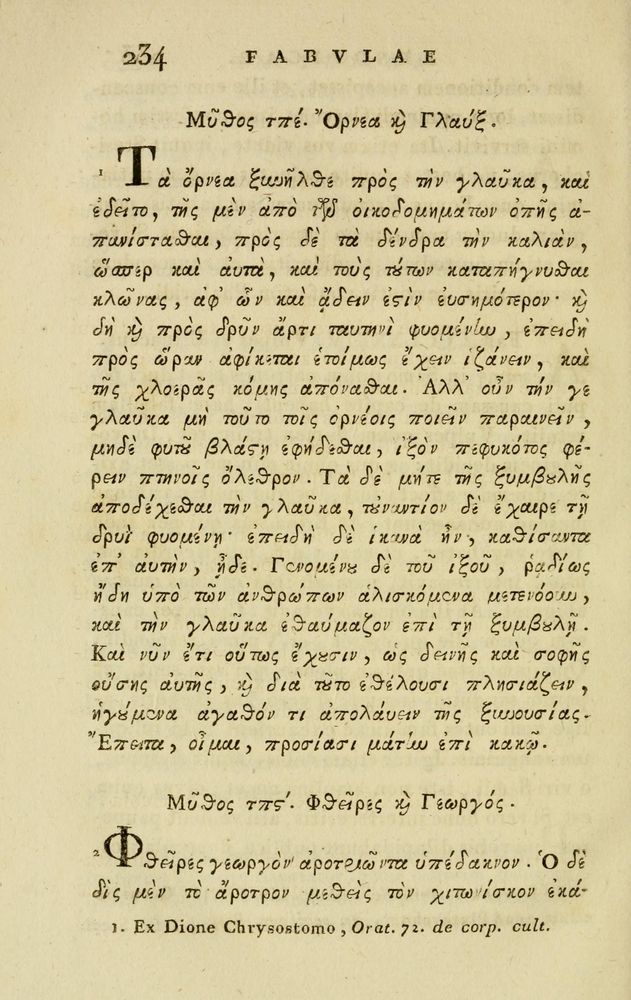 234 FABVLAE
Μῦθος τπέ. Ὄρνεα καὶ Γλαύξ.
1 Τὰ ὄρνεα ξυνῆλθε πρὸς τὴν γλαῦκα, καὶ
ἐδεῖτο, τῆς μὲν ἀπὸ τῶν οἰκοδομημάτων ὀπῆς ἀ-
πανίστασθαι, πρὸς δὲ τὰ δένδρα τὴν καλιὰν,
ὥσπερ καὶ αὐτὰ, καὶ τοὺς τούτων καταπήγνυσθαι
κλῶνας, ἀφ' ὧν καὶ ᾄδειν ἐστὶν εὐσημότερον· καὶ
δὴ καὶ πρὸς δρῦν ἄρτι ταυτηνὶ φυομένην, ἐπειδὴ
πρὸς ὥραν ἀφίκεται ἑτοίμως ἔχειν ἱζάνειν, καὶ
τῆς χλοερᾶς κόμης ἀπόνασθαι. Ἀλλ' οὖν τήν γε
γλαῦκα μὴ τοῦτο τοῖς ὀρνέοις ποιεῖν παραινεῖν,
μηδὲ φυτοῦ βλάστῃ ἐφήδεσθαι, ἰξὸν πεφυκότος φέ-
ρειν πτηνοῖς ὄλεθρον. Τὰ δὲ μήτε τῆς ξυμβουλῆς
ἀποδέχεσθαι τὴν γλαῦκα, τοὐναντίον δὲ ἔχαιρε τῇ
δρυῒ φυομένῃ· ἐπειδὴ δὲ ἱκανὰ ἦν, καθίσαντα
ἐπ' αὐτὴν, ᾖδε. Γενομένου δὲ τοῦ ἰξοῦ, ῥαδίως
ἤδη ὑπὸ τῶν ἀνθρώπων ἁλισκόμενα μετενόουν,
καὶ τὴν γλαῦκα ἐθαύμαζον ἐπὶ τῇ ξυμβουλῇ.
Καὶ νῦν ἔτι οὕτως ἔχουσιν, ὡς δεινῆς καὶ σοφῆς
οὔσης αὐτῆς, καὶ διὰ τοῦτο ἐθέλουσι πλησιάζειν,
ἡγούμενα ἀγαθόν τι ἀπολάυειν τῆς ξυνουσίας.
Ἔπειτα, οἶμαι, προσίασι μάτην ἐπὶ κακῷ.
Μῦθος τπϛ'. Φθεῖρες καὶ Γεωργός.
2 Φθεῖρες γεωργὸν ἀροτριῶντα ὑπέδακνον. Ὁ δὲ
δὶς μὲν τὸ ἄροτρον μεθεὶς τὸν χιτωνίσκον ἐκά-
1. Ex Dione Chrysostomo, Orat. 72. de corp. cult.